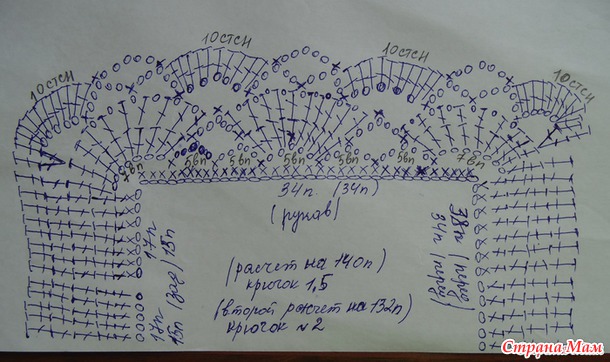 10СТСН
10СТСН
10СТСН
10СТСН
5вп
5вп
5вп
5вп
5вп
7вп
34п. (34п)
(рукав)
17п
18п
17п (зад)
18п
38п (перед)
34п (перед)
(расчет на 140п)
крючок 1,5
(второй расчет на 132п)
крючок №2
Страна Мам